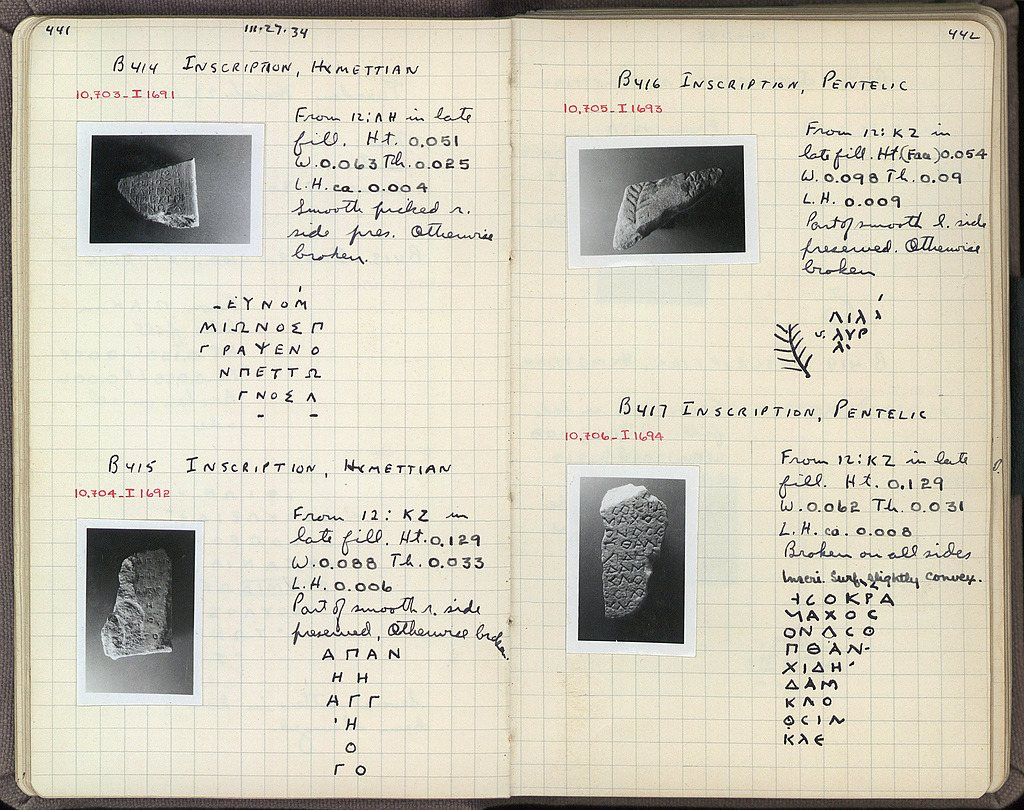 441
III·27·34
B414 INSCRIPTION, HYMETTIAN
10,703-I 1691
From 12:ΛΗ in late
fill. Ht. 0.051
W. 0.063 Th. 0.025
L.H. ca. 0.004
Smooth picked r.
side pres. Otherwise
broken.
ΕΥΝΟΜ
ΜΙΩΝΟΣΠ
ΓΡΑΨΕΝΟ
ΝΠΕΤΤΩ
ΓΝΟΣΛ
B415 INSCRIPTION, HYMETTIAN
10,704-I 1692
From 12: KZ in
late fill. Ht. 0.129
W. 0.088 Th. 0.033
L.H. 0.006
Part of smooth r. side
preserved, Otherwise broken.
ΑΠΑΝ
ΗΗ
ΑΓΓ
Ή
Ο
ΓΟ
442
B416 INSCRIPTION, PENTELIC
10,705-I 1693
From 12: KZ in
late fill. Ht (Face) 0.054
W. 0.098 Th. 0.09
L.H. 0.009
Part of smooth l. side
preserved. Otherwise
broken
ΛΙλ
v. λΥΡ
λ·
B417 INSCRIPTION, PENTELIC
10,706-I 1694
From 12:KZ in late
fill. Ht. 0.129
W. 0.062 Th. 0.031
L.H. ca. 0.008
Broken on all sides
Inscr. Surf. slightly convex.
ϹΟΚΡΑ
ΜΑΧΟϹ
ΟΝΔϹΟ
ΠΘΑΝ-
ΧΙΔΗ'
ΔΑΜ
ΚΛΟ
ΘϹΙΝ
ΚλЄ